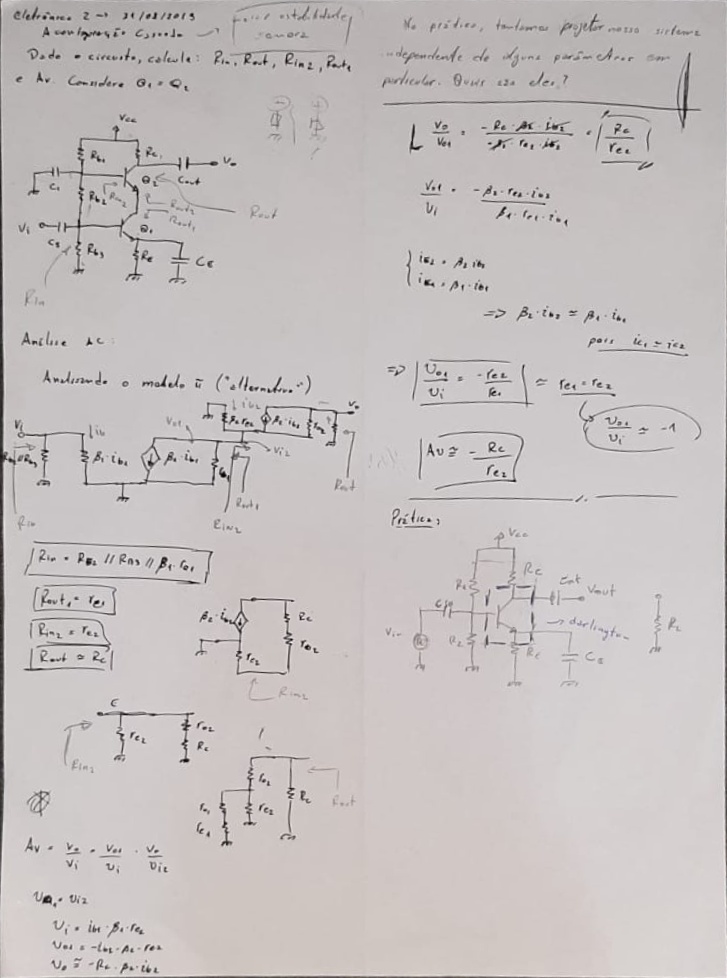 eletrônica 2 → 21/08/2019
A configuração Cascode → maior estabilidade
Dado o circuito, calcule: Rin, Rout, Rin2, Rout1
e Av. Considere Q1 = Q2
Vcc
Rb1
Rc
Cout
Vo
C1
Q2
Rb2
Rin2
Rout2
Rout1
Rout
Vi
Q1
Rb3
RE
CE
Rin
Análise AC:
Analisando o modelo π ("alternativo")
Vi
ib
β1·ib1
β1·ib1
Vo1
ib2
β2·re2
β2·ib2
ro2
Vo
Vi2
Rout
Rout1
Rin
Rin2
Rin = RB2 // RB3 // β1·re1
Rout1 = ro1
Rin2 = re2
Rout ≈ Rc
β2·ib2
Rc
ro2
re2
Rin2
E
re2
ro2
Rc
Rin2
ro2
ro1
re2
Rc
Rout
re1
Av = Vo/Vi = Vo1/Vi · Vo/Vi2
Vo1 = Vi2
Vi = ib1·β1·re2
Vo1 = -ib2·β2·re2
Vo ≅ -Rc·β2·ib2
Na prática, tentamos projetar nosso sistema
independente de alguns parâmetros em
particular. Quais são eles?
Vo/Vo1 = -Rc·β2·ib2 / -β2·re2·ib2 = Rc/re2
Vo1/Vi = -β2·re2·ib2 / β1·re1·ib1
iE2 = β2·ib2
iE1 = β1·ib1
=> β2·ib2 ≃ β1·ib1
pois ic1 ≃ ic2
=> Vo1/Vi = -re2/re1 ≃ re1 = re2
Vo1/Vi ≃ -1
Av ≅ - Rc/re2
Prática:
Vcc
R1
Rc
Cout
Vout
Cin
Vin
R2
→ darlington
RE
CE
RL